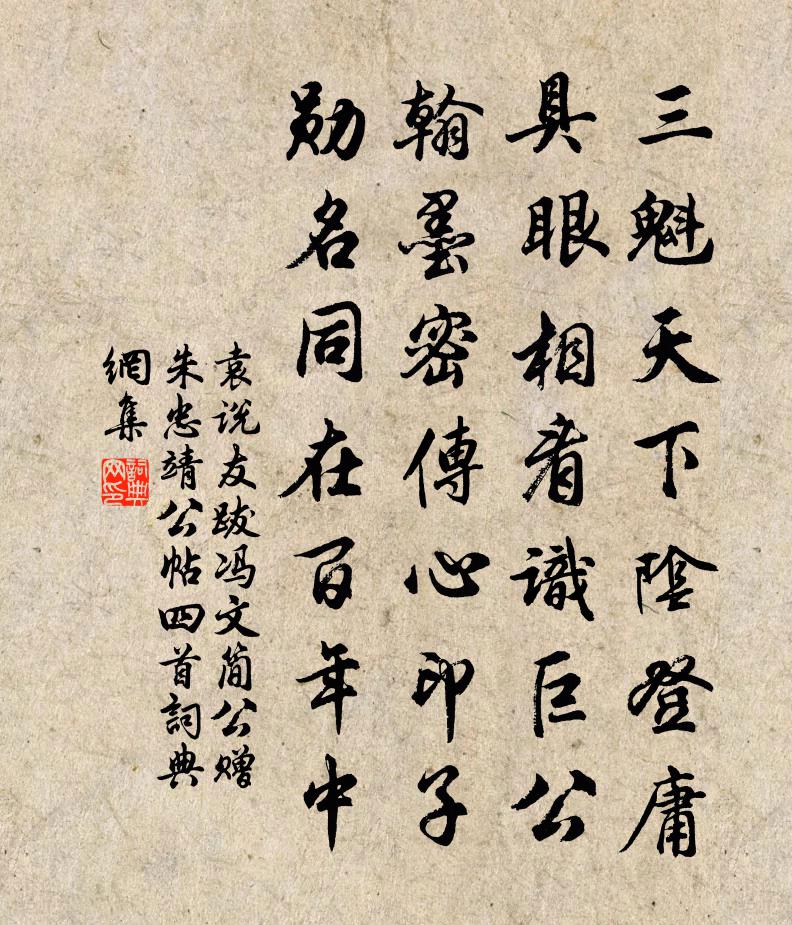 三魁天下陰登庸
具眼相看識巨公
翰墨密傳心印子
勛名同在百年中
袁说友跋冯文简公赠
朱忠靖公帖四首詞典
網集
詞典網印